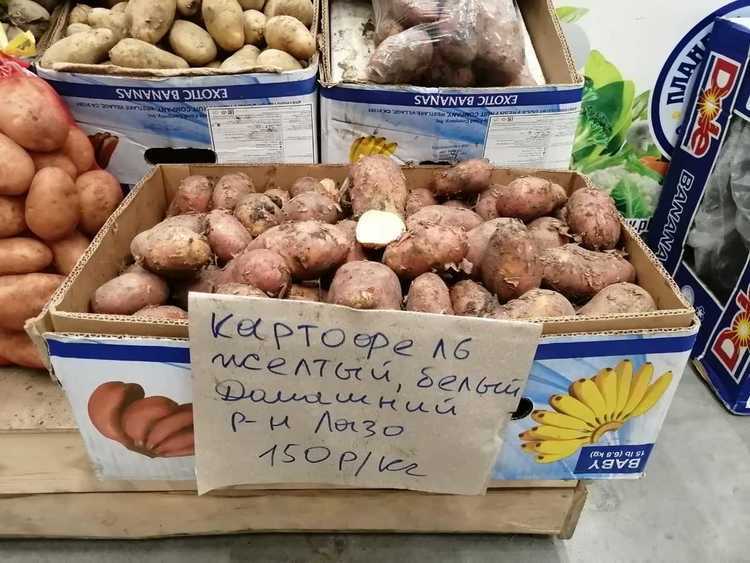 EXOTIC BANANAS
EXOTIC BANANAS
Dole
BANANA
картофель
желтый, белый
Домашний
р-н Лазо
150р/кг
BABY
15 lb (6.8 kg)
Dole